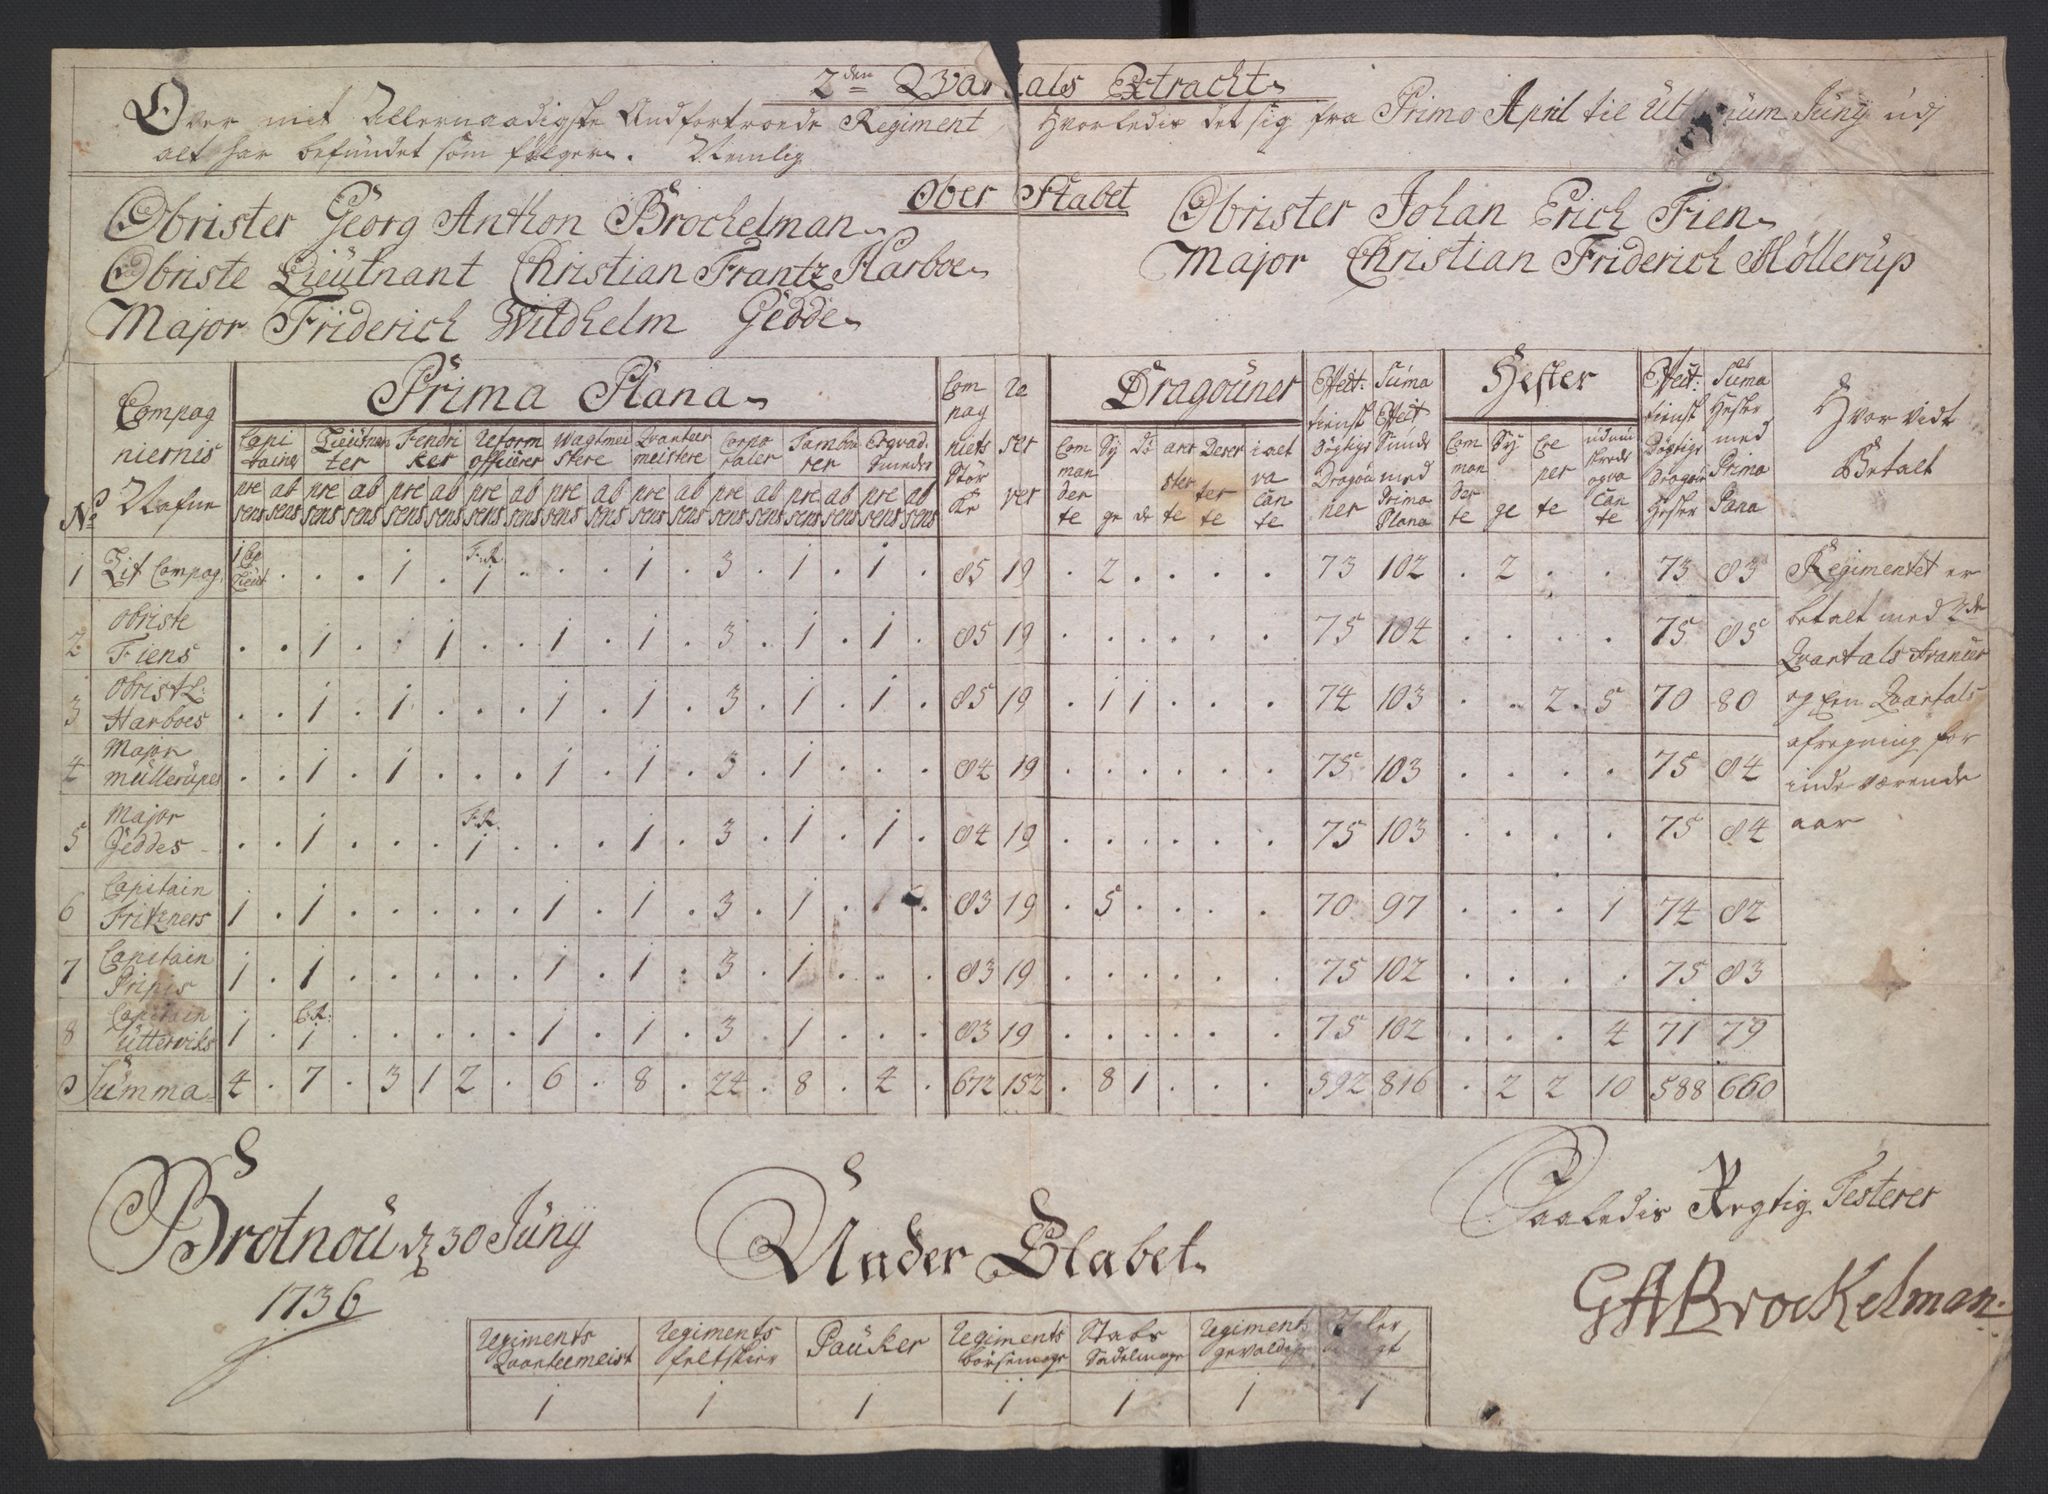 2den Qvartals Extract
Over mit Allernaadigste Andfortroede Regiment Hvorledis det sig fra Primo April til Ultimum Junÿ udj
alt har befundet som følger. Nemlig
Ober Stabet
Obrister Georg Anthon Brockelman
Obrister Johan Erich Fien
Obriste Lieutnant Christian Frantz Harboe
Major Christian Friderich Møllerup
Major Friderich Wildhelm Gedde
No Compagniernis Nafne
Prima Plana
Capitainer Lieutnanter Fendriker Reform officirer Wagtmeistere Qvarteermeistere Corporaler Tambourer Esqvad Smeder
presens absens presens absens presens absens presens absens presens absens presens absens presens absens presens absens presens absens
Compagniets Størke Reserver
Dragouner
Commanderte Syge Døde Arresterte Deserterte i alt vacante
Effectiv tienst Dögtige Dragouner
Suma Effect Sunde med Prima Plana
Hester
Commanderte Syge Creperte udmunstrede og vacante
Effect: tienst Dögtige Dragoun Hester
Suma Hester med Prima Plana
Hvor vidt Betalt
1 Lif Compag. 1 Cap Lieut . . . 1 . F:R. 1 . . . 1 . 3 . 1 . 1 . 85 19 . 2 . . . . 73 102 . 2 . . 73 83
2 Obriste Fiens . . 1 . . 1 . . 1 . 1 . 3 . 1 . 1 . 85 19 . . . . . . 75 104 . . . . 75 85
3 Obrist L: Harboes . . 1 . 1 . . . 1 . 1 . 3 . 1 . 1 . 85 19 . 1 1 . . . 74 103 . . 2 . 5 70 80
4 Major Müllerupes . . 1 . 1 . . . 1 . 1 . 3 . 1 . . . 84 19 . . . . . . 75 103 . . . . 75 84
5 Major Geddes . . 1 . . . F.R. 1 . . . 1 . 3 . 1 . 1 . 84 19 . . . . . . 75 103 . . . . 75 84
6 Capitain Fritzners 1 . 1 . . . . . 1 . 1 . 3 . 1 . . 83 19 . 5 . . . . 70 97 . . . 1 74 82
7 Capitain 1 . 1 . . . . . 1 . 1 . 3 . 1 . . . 83 19 . . . . . . 75 102 . . . . 75 83
8 Capitain Utterviks 1 . C.R: 1 . . . . . 1 . 1 . 3 . 1 . . . 83 19 . . . . . . 75 102 . . . 4 71 79
Summa 4 . 7 . 3 1 2 . 6 . 8 . 24 . 8 . 4 . 672 152 . 8 1 . . . 592 816 . 2 2 10 588 660
Regimentet er
betalt med 2de
Qvartals
og Een Qvartals
afregning for
inde værende
aar
Brotnou d 30 Junÿ
1736
Under Stabet
Saaledis Rigtig Testerer
GABrockelman
Regiments Qvarteermeist Regiments feltskier Pauker Regiments börsemager Stabs Sadelmager Regiments gevaldiger
1 1 1 1 1 1 1